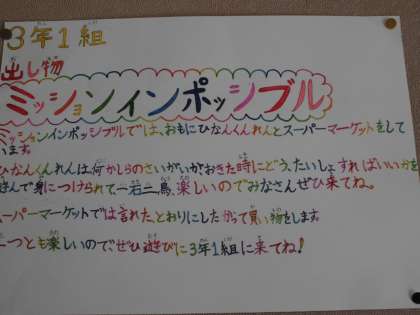 3年1組
出し物
ミッションインポッシブル
ミッションインポッシブルでは、おもにひなんくんれんとスーパーマーケットをして
います。
ひなんくんれんは何かしらのさいがいがおきた時にどう、たいしょすればいいかを
遊んで身につけられて一石二鳥、楽しいのでみなさんぜひ来てね。
スーパーマーケットでは言われた、とおりにしたがって買い物をします
二つとも楽しいので、ぜひ遊びに3年1組に来てね!